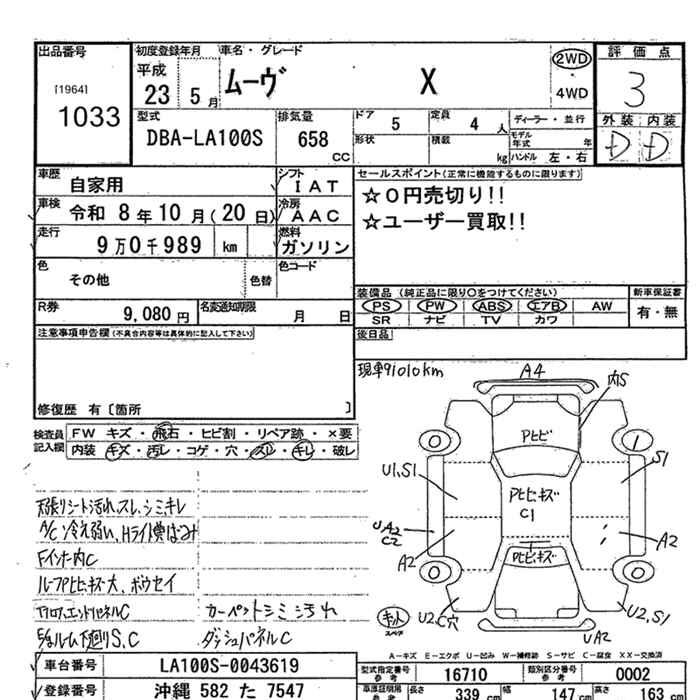 出品番号
[1964]
1033
初度登録年月
平成
23 5月
車名・グレード
ムーヴ X
2WD
4WD
評価点
3
外装 内装
D D
型式
DBA-LA100S
排気量
658
CC
ドア 5
定員 4 人
形状
積載 kg
ディーラー・並行
モデル年式 年
ハンドル 左・右
車歴 自家用
シフト I A T
車検 令和 8年 10月(20日)
冷房 A A C
走行 9万0千989 km
燃料 ガソリン
色 その他
色替
色コード
R券 9,080円
名変通知期限 月 日
セールスポイント(正常に機能するものに限ります)
☆0円売切り!!
☆ユーザー買取!!
装備品(純正品に限り○をつけてください)
PS PW ABS エアB AW
SR ナビ TV カワ
新車保証書
有・無
後日品
注意事項申告欄(不具合内容等は具体的に記入して下さい)
修復歴 有〔箇所 〕
現車91010km
検査員記入欄
FW キズ・飛石・ヒビ割・リペア跡・×要
内装 キズ・汚レ・コゲ・穴・スレ・キレ・破レ
天張りシート汚れ、スレ、シミキレ
A/C冷え弱い、Hライト黄ばみ
Fインナー内C
ルーフPヒビキズ大、ボウセイ
フロア、エンドパネルC
カーペットシミ汚れ
下廻りS、C
ダッシュパネルC
A4
内S
Pヒビ
U1,S1
S1
Pヒビキズ
C1
UA2
C2
A2
A2
Pヒビキズ
キット
スペア
U2,C穴
U2,S1
UA2
A-キズ E-エクボ U-凹み W-補修跡 S-サビ C-腐食 XX-交換済
車台番号 LA100S-0043619
登録番号 沖縄 582 た 7547
型式指定番号 参考 16710
類別区分番号 参考 0002
長さ 339 cm
幅 147 cm
高さ 163 cm